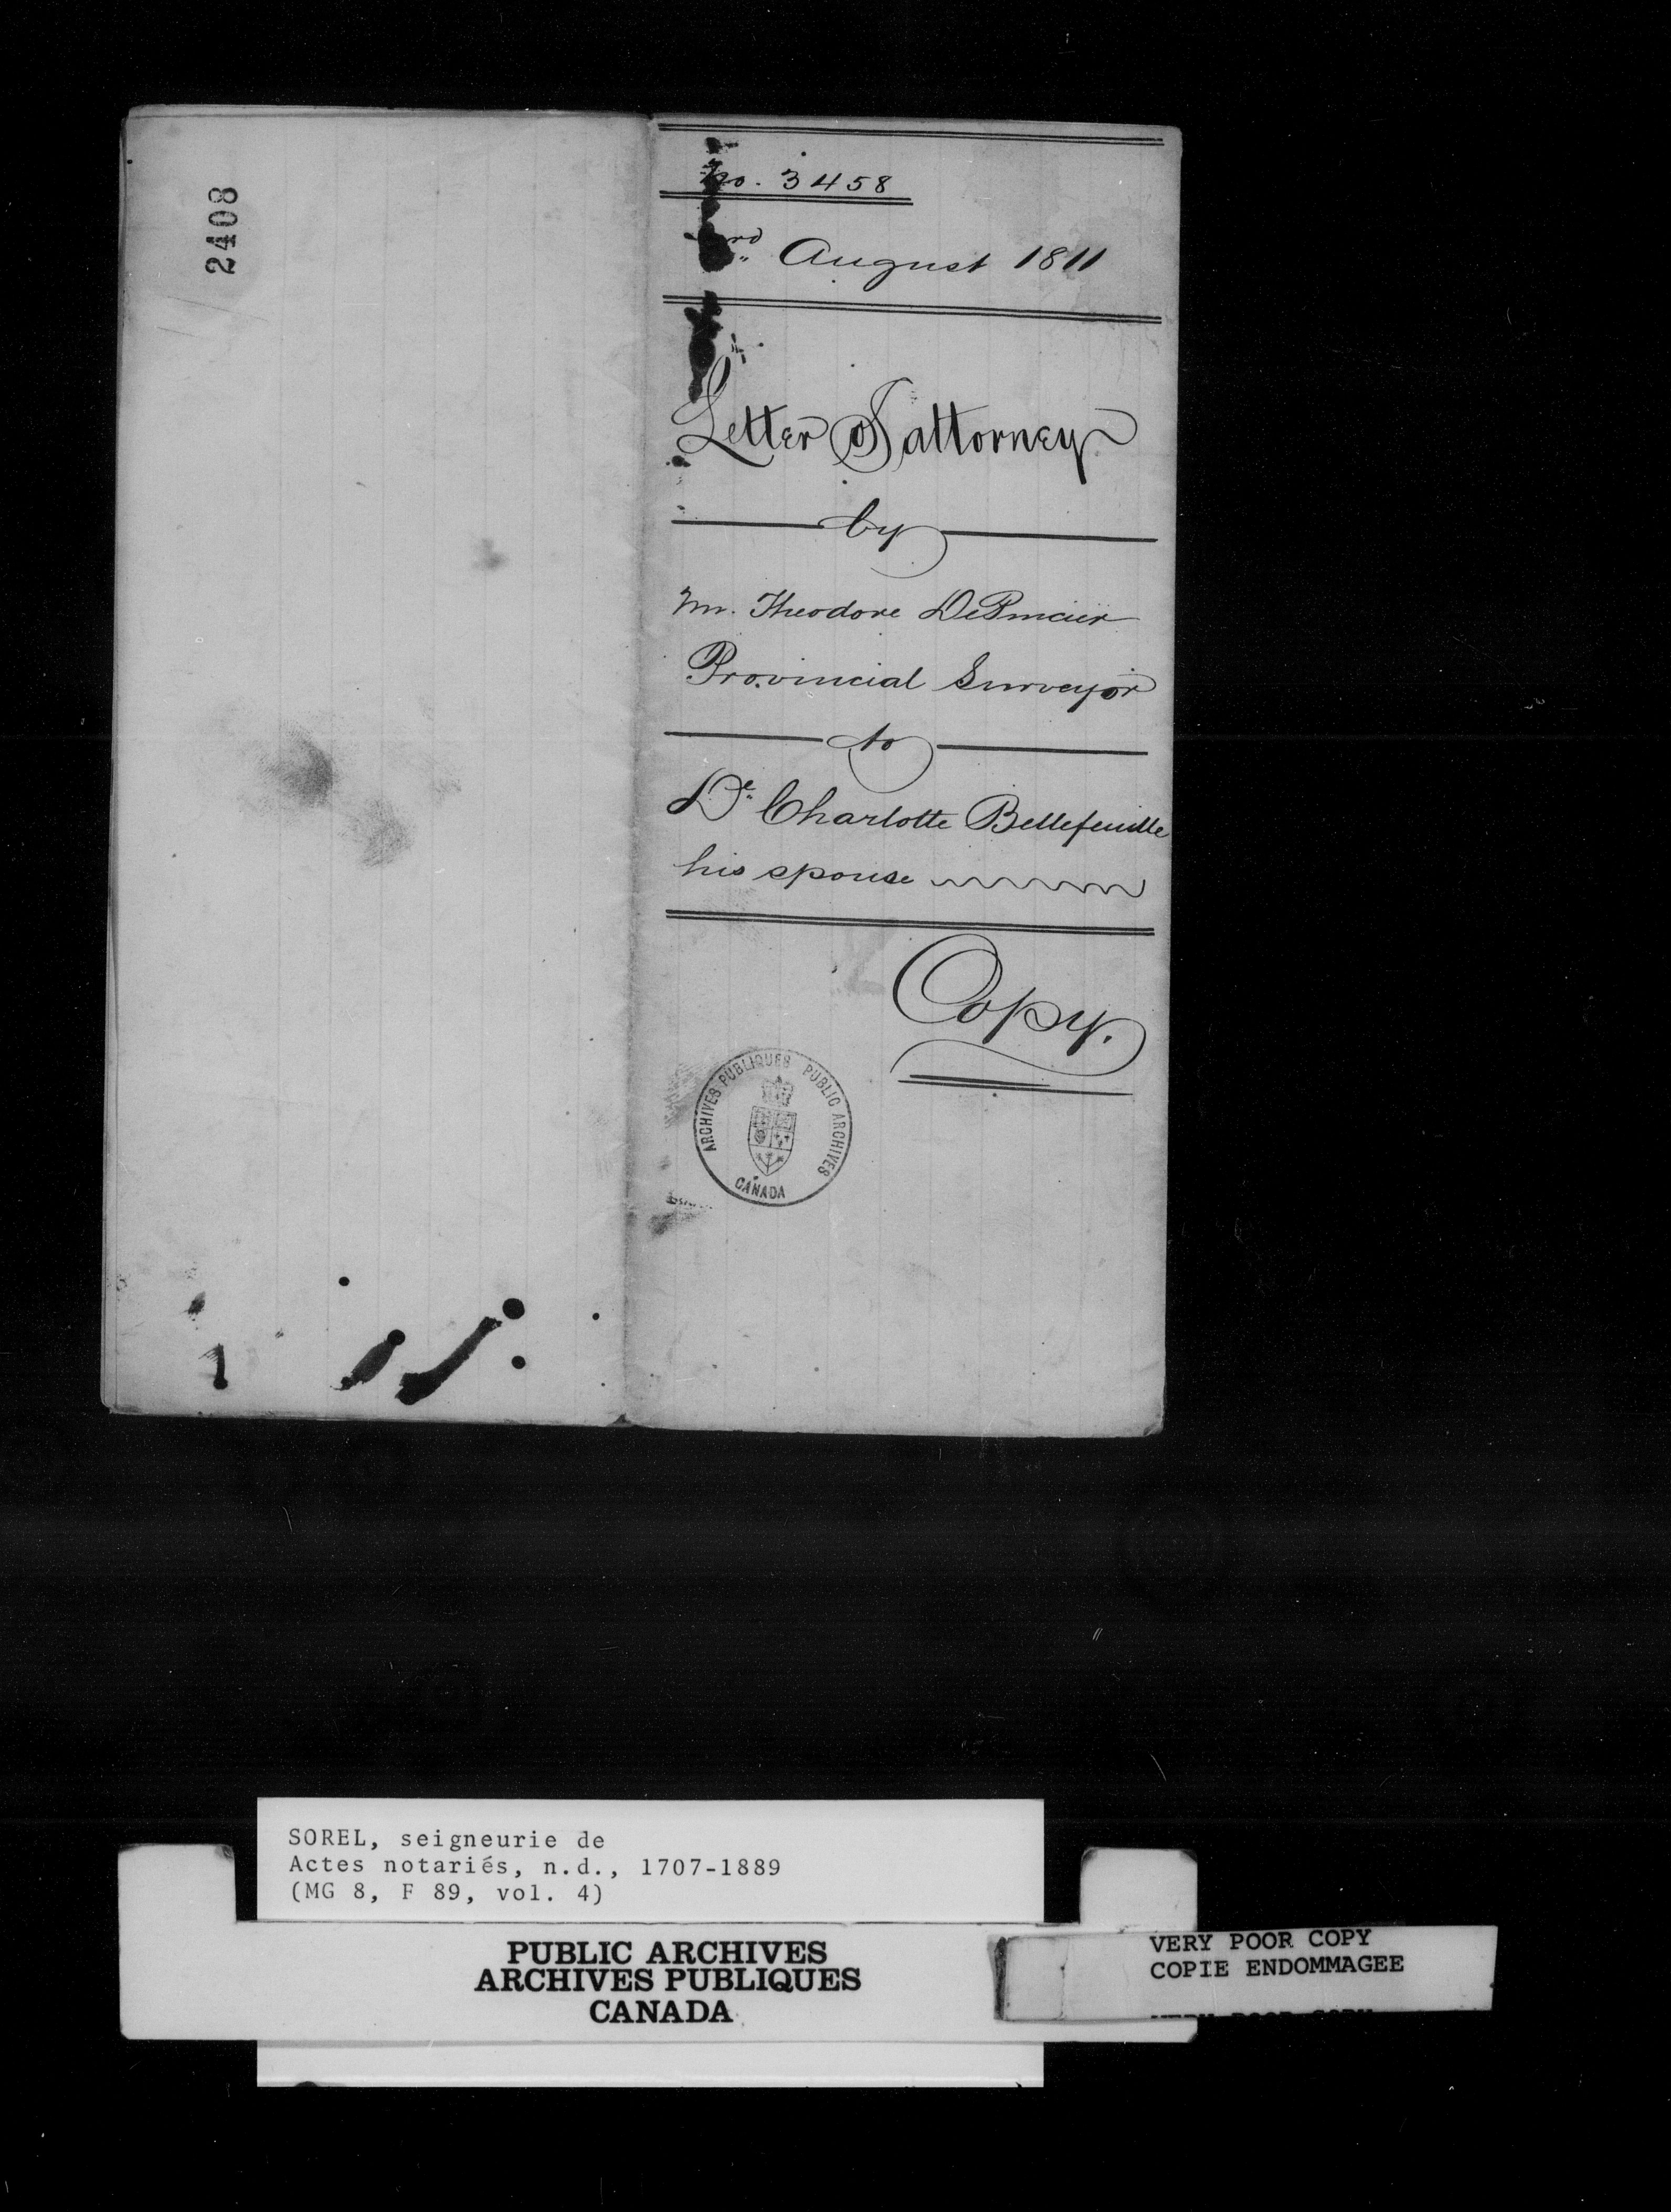 2408
No. 3458
rd August 1811
Letter of attorney
by
Mr. Theodore DePincier
Provincial Surveyor
to
De. Charlotte Bellefeuille
his spouse
Copy.
ARCHIVES PUBLIQUES PUBLIC ARCHIVES
CANADA
SOREL, seigneurie de
Actes notariés, n.d., 1707-1889
(MG 8, F 89, vol. 4)
PUBLIC ARCHIVES
ARCHIVES PUBLIQUES
CANADA
VERY POOR COPY
COPIE ENDOMMAGEE
VERY POOR COPY